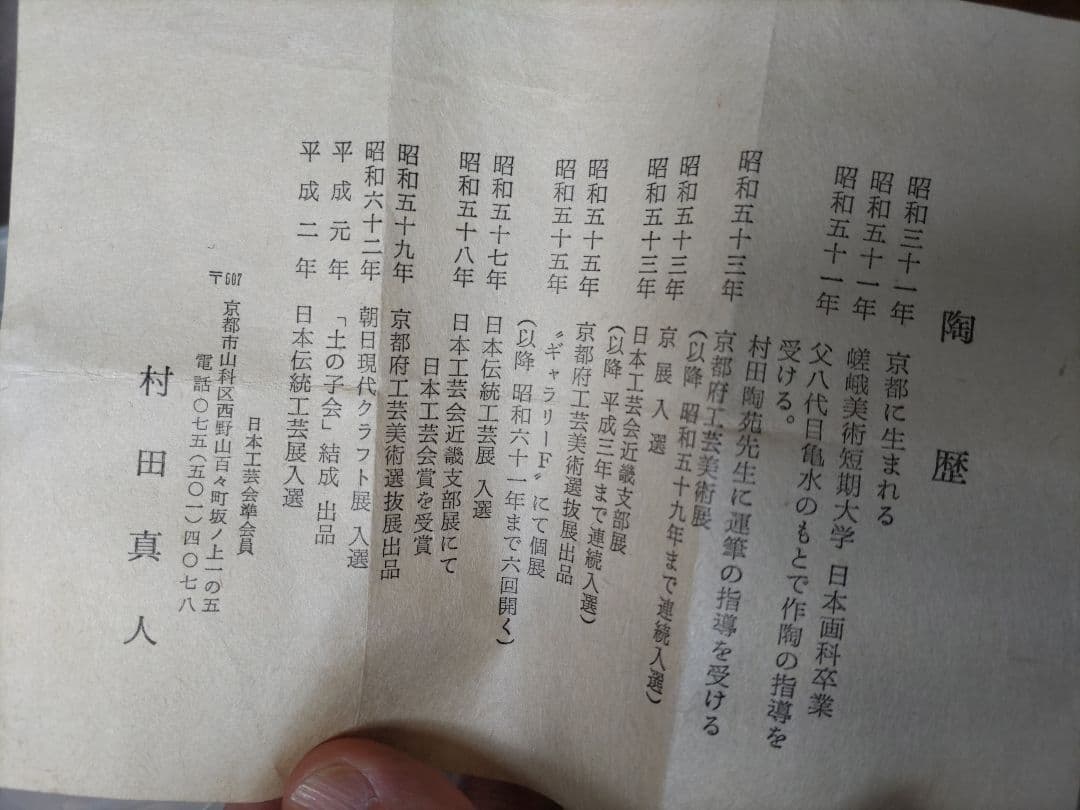 陶歴
昭和三十一年 京都に生まれる
昭和五十一年 嵯峨美術短期大学 日本画科卒業
昭和五十一年 父八代目亀水のもとで作陶の指導を
受ける。
昭和五十三年 村田陶苑先生に運筆の指導を受ける
京都府工芸美術展
(以降 昭和五十九年まで連続入選)
昭和五十三年 京展入選
昭和五十三年 日本工芸会近畿支部展
(以降 平成三年まで連続入選)
昭和五十五年 京都府工芸美術選抜展出品
昭和五十五年 〝ギャラリーF〟にて個展
(以降 昭和六十一年まで六回開く)
昭和五十七年 日本伝統工芸展 入選
昭和五十八年 日本工芸会近畿支部展にて
日本工芸会賞を受賞
昭和五十九年 京都府工芸美術選抜展出品
昭和六十二年 朝日現代クラフト展 入選
平成元年 「土の子会」結成 出品
平成二年 日本伝統工芸展入選
日本工芸会準会員
〒607 京都市山科区西野山百々町坂ノ上一の五
電話〇七五(五〇一)四〇七八
村田真人